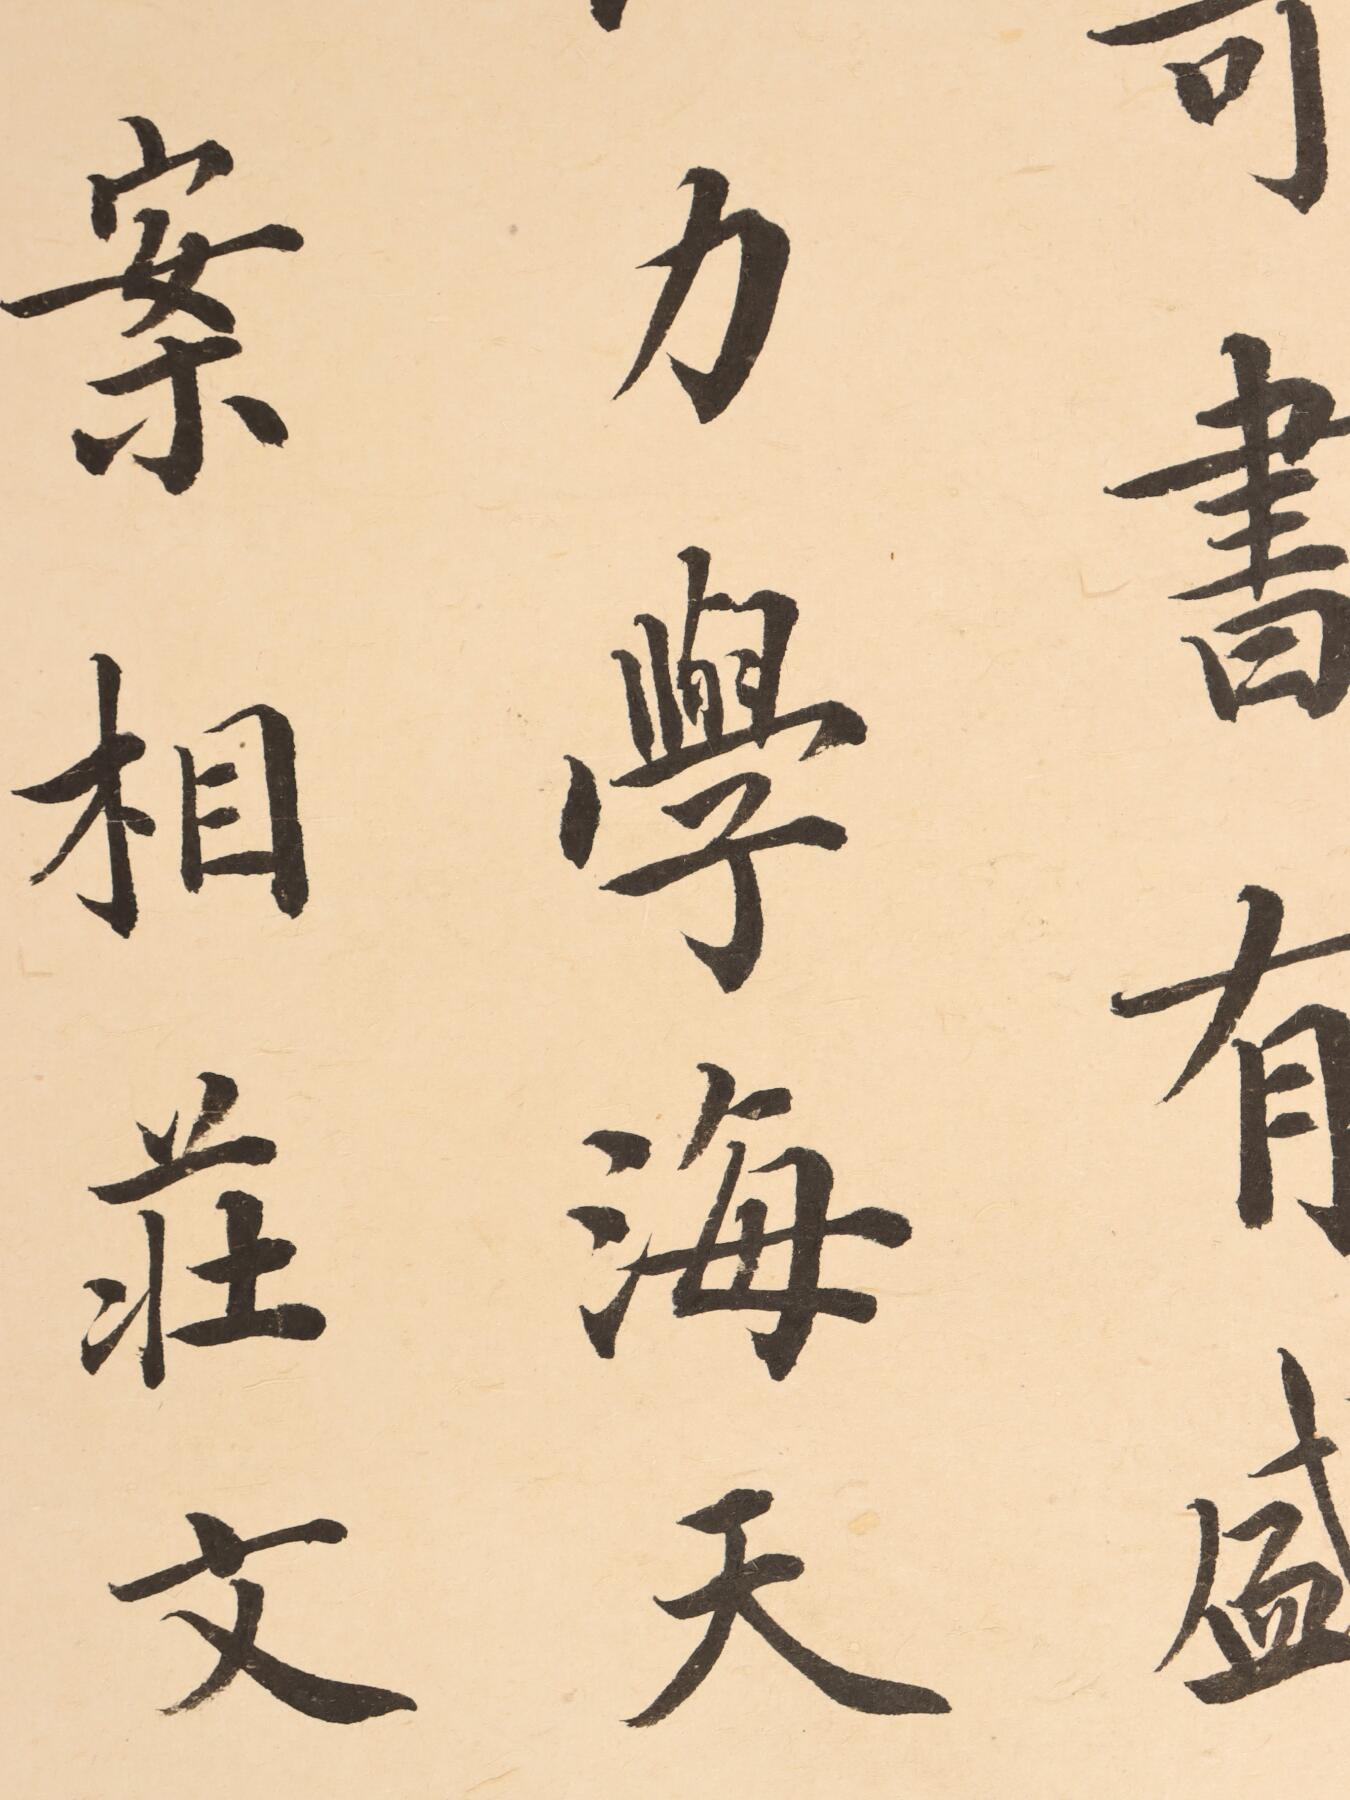 書有盛
力學海天
案相莊文